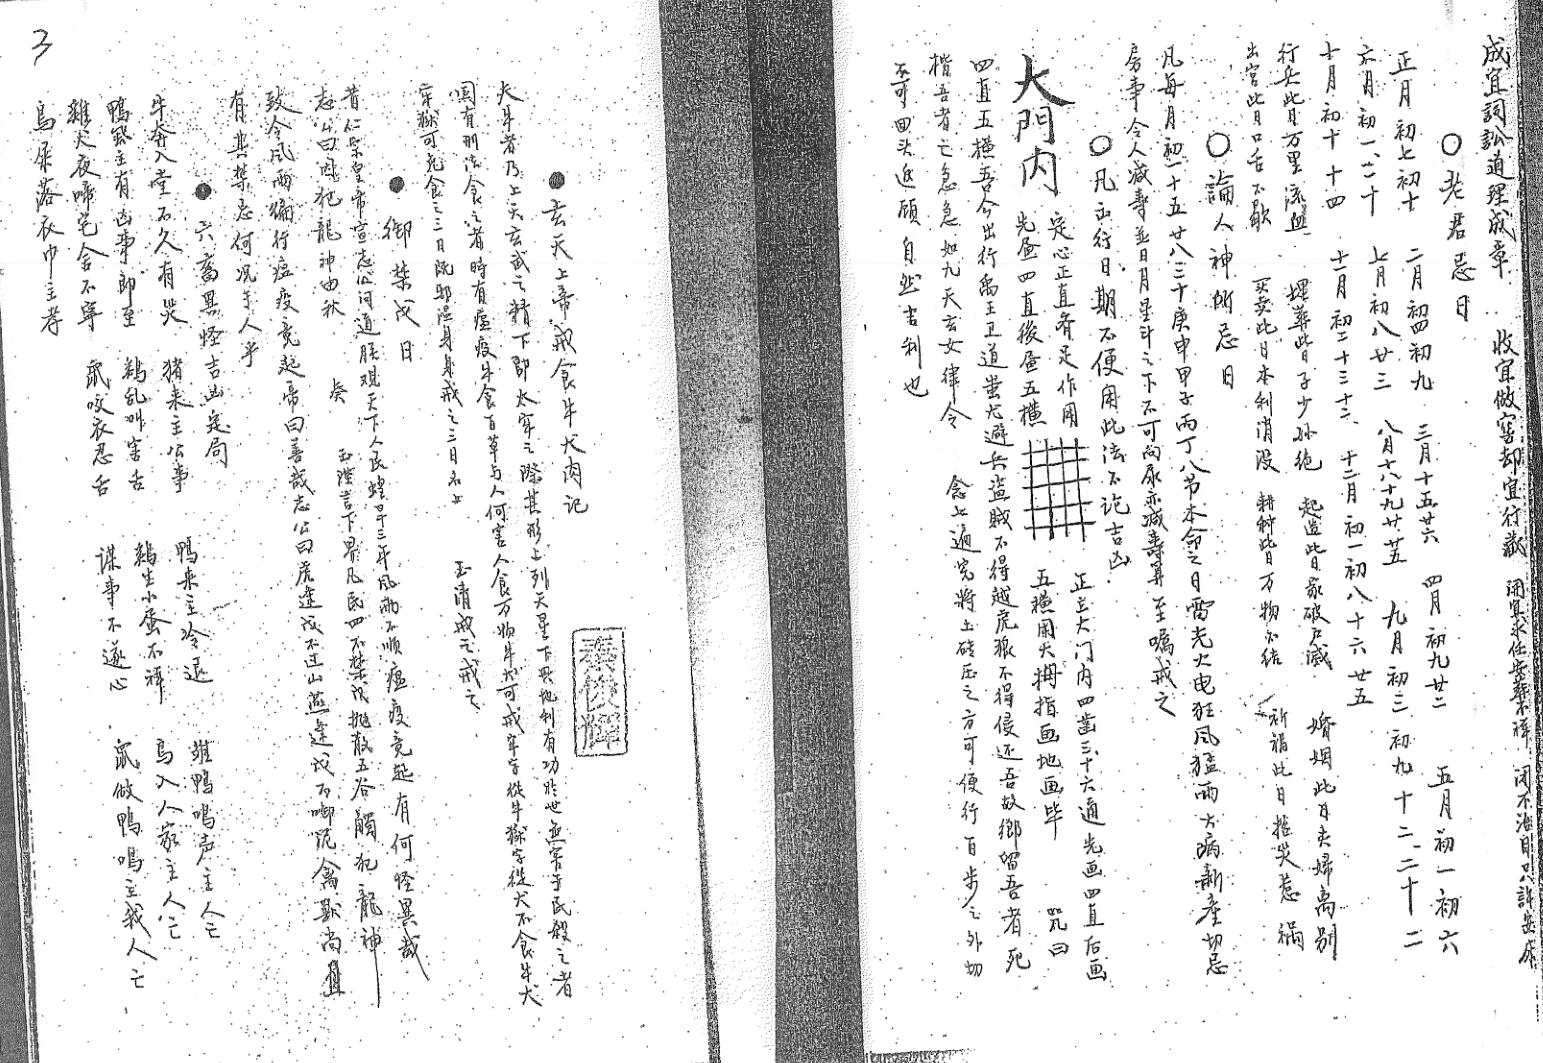 成宜詞訟道理成章　收宜做窖却宜行嫁　開宜求仕安葬不祥　闭不治目只許安床
○老君忌日
正月初七初十　二月初四初九　三月十五廿六　四月初九廿二　五月初一初六
六月初一、二十　七月初八廿三　八月十八十九廿五　九月初三初九十二、二十二
十月初十十四　十一月初二十三廿二、十二月初一初八十六廿五
行兵此日万里流血　埋葬此日子少孙绝　起造此日家破户滅　婚姻此日夫婦离别
出宫此日口舌不歇　买卖此日本利消没　耕种此日万物不结　祈福此日招災惹禍
○論人神所忌日
凡每月初一十五廿八三十庚申甲子丙丁八节本命之日雷光火电狂风猛雨大病新產切忌
房事令人减寿並日月星斗之下不可向尿亦减寿算至嘱戒之
○凡出行日期不便用此法不论吉凶
大門内　定心正直齐足作用　先昼四直後昼五横　正立大门内四凿三十六通先画四直后画五横用大拇指画地画毕　咒曰
四直五横吾今出行禹王卫道蚩尤避兵盗贼不得越虎狼不得侵还吾故鄉當吾者死
楷吾者亡急急如九天玄女律令　念七遍完將土砖压之方可便行百步之外切
不可回头返顾自然吉利也
3
●玄天上帝戒食牛犬肉记
犬牛者乃上天玄武之精下即太牢之際其形上列天星下毋地利有功於世無害于民殺之者
国有刑法食之者時有瘟疫牛食百草与人何害人食万物牛犬可戒牢字從牛獄字從犬不食牛犬
牢獄可免食之三日既邪湿身身戒之三日不上　玉清戒之戒之
●御禁戊日
昔仁宗皇帝宣志公问道朕观天下人民蝗旱三年风雨不顺瘟疫竞起有何怪異哉
志公曰因犯龍神由秋　癸　玉陛言下界凡民四不禁戊抛散五谷觸犯龍神
致令风雨偏行瘟疫竞起帝曰善哉志公曰虎逢戊不过山燕逢戊不啣泥禽獸尚且
有其禁忌何况于人乎
●六畜異怪吉凶定局
牛奔入堂不久有哭　猪来主公事　鸭来主冷退　雞鴨鳴声主人亡
鴨發主有凶事即至　鷄乱叫害舌　鷄生小蛋不祥　鸟入人家主人亡
雞犬夜啼宅舍不寧　鼠咬衣忌舌　谋事不遂心　鼠做鴨鳴主我人亡
鸟屎落衣巾主孝
秦俊輝